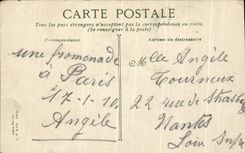 CARTE POSTALE
Tous les pays étrangers n'acceptent pas la correspondance au recto.
(Se renseigner à la poste)
Correspondance
Adresse du destinataire
une promenade
à Paris
17-1-10
Angèle
Mlle Angèle
Tourneux
22 rue de Strasbg
Nantes
Loire Infre